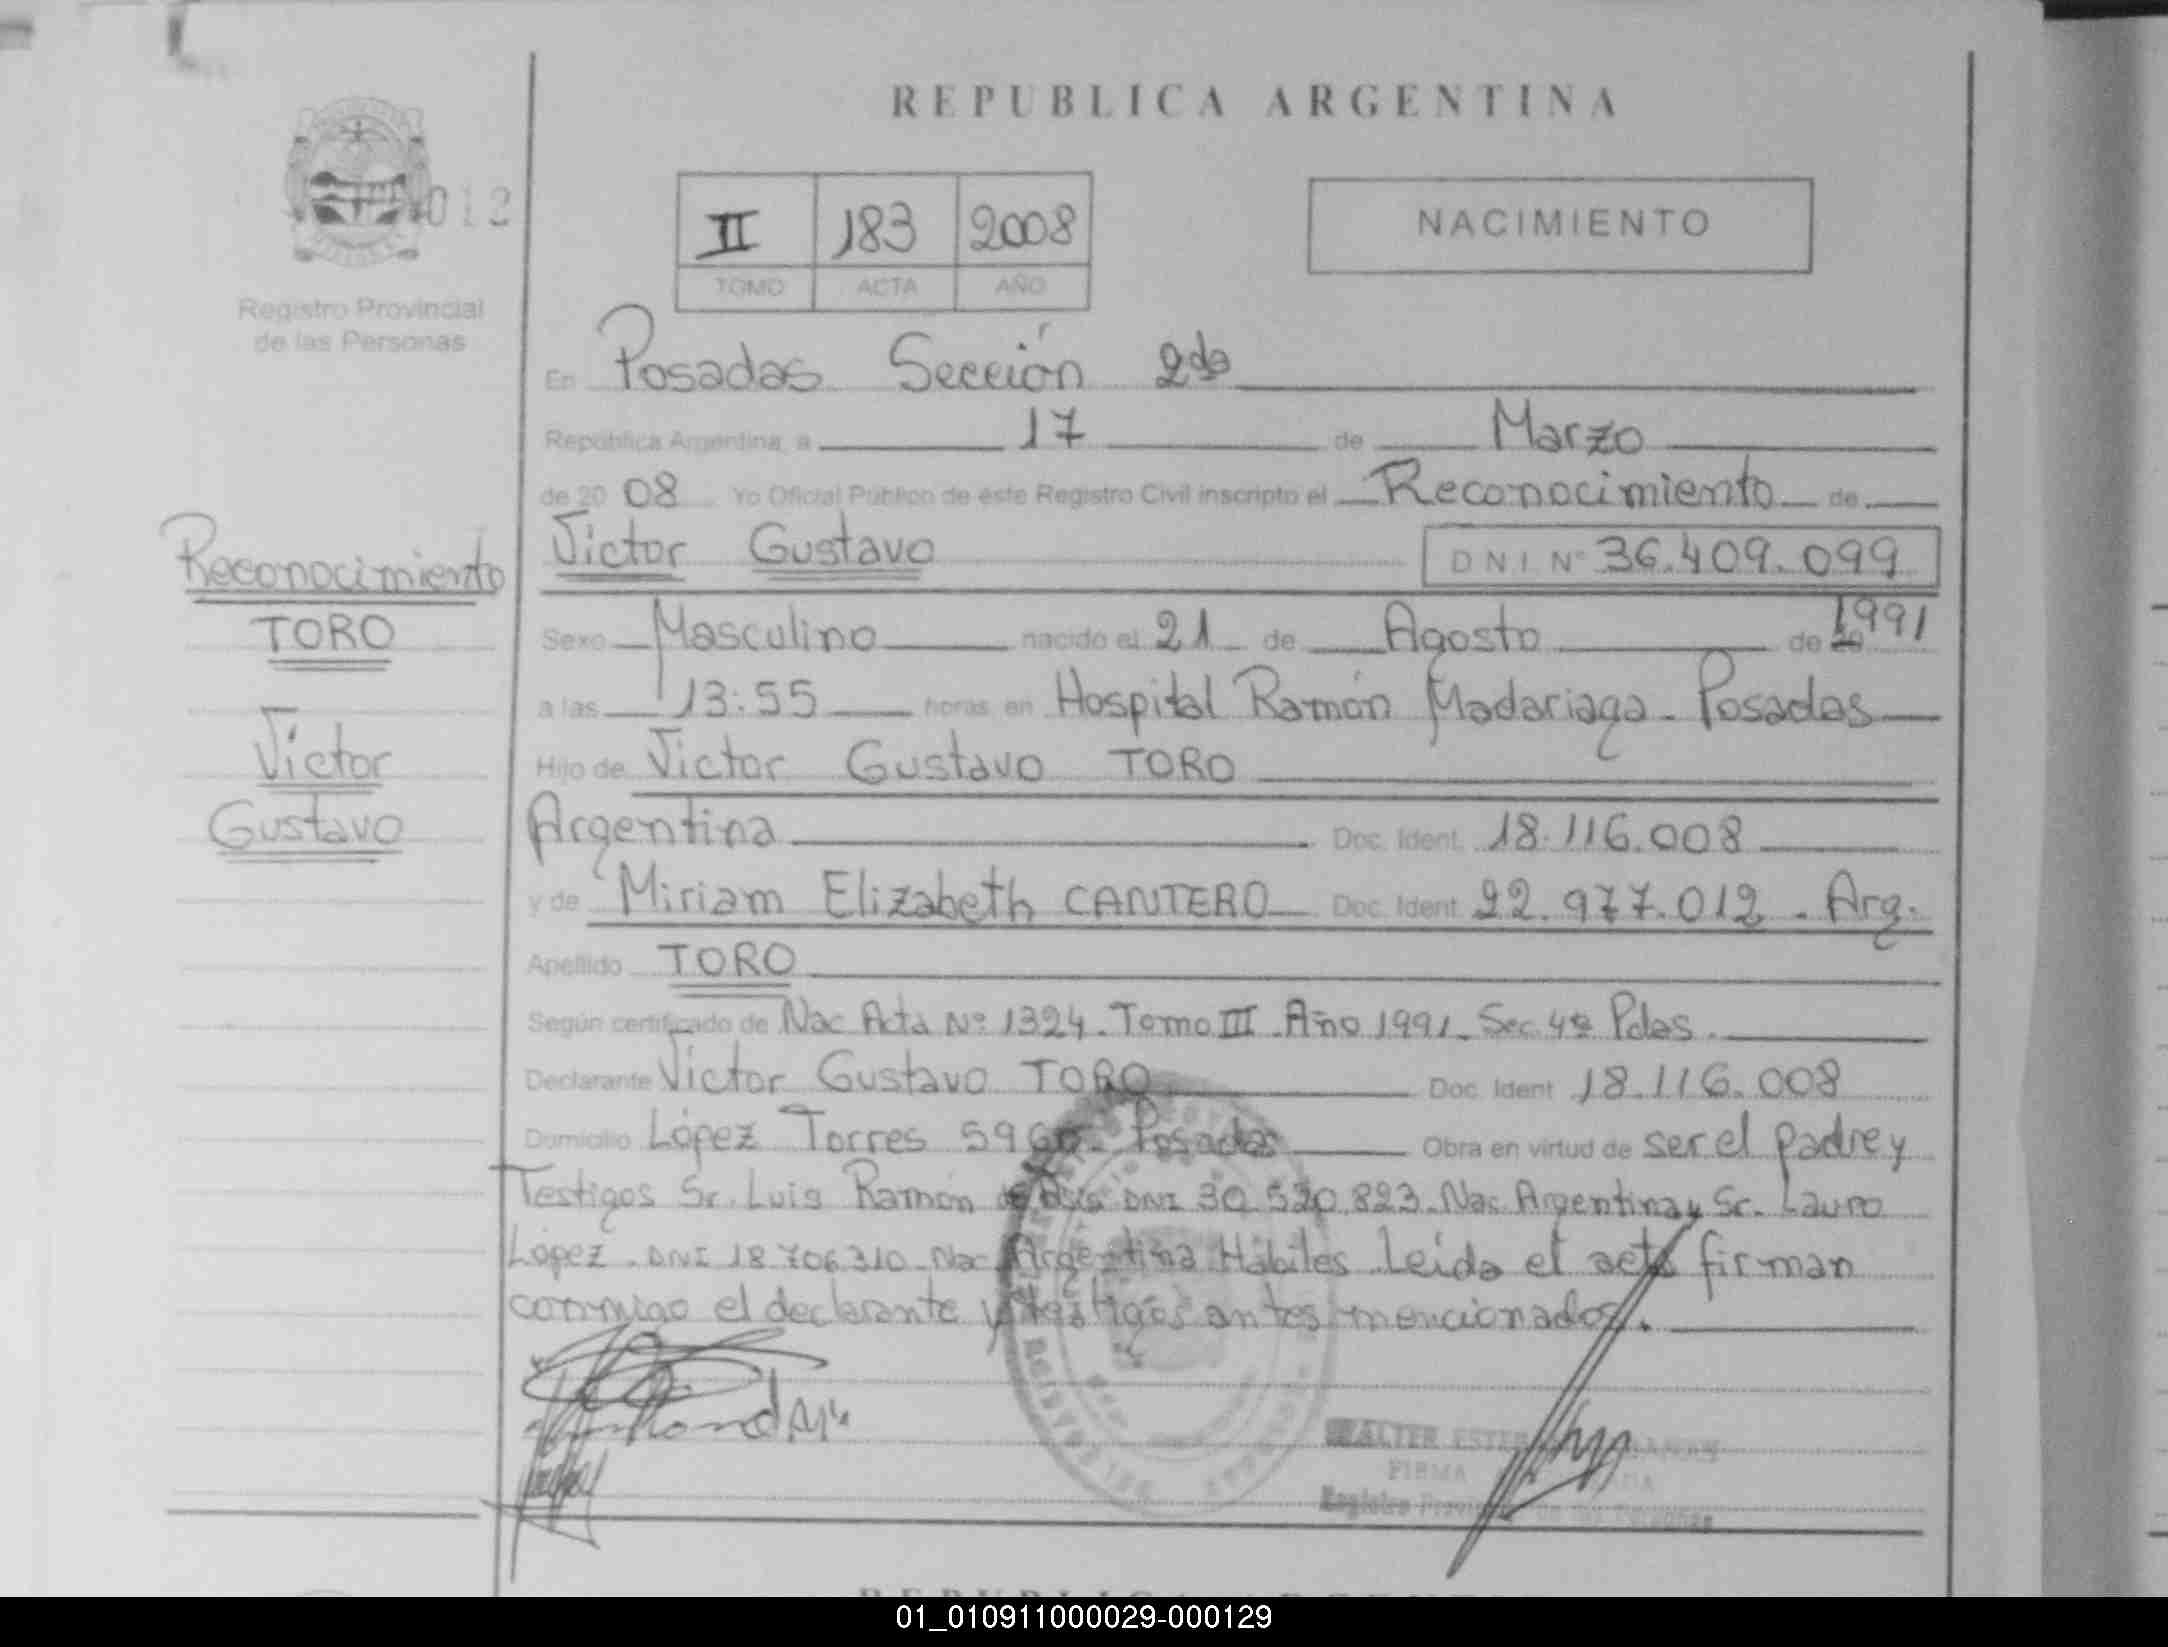 REPUBLICA ARGENTINA
012
Registro Provincial
de las Personas
II 183 2008
TOMO ACTA AÑO
NACIMIENTO
En Posadas Sección 2da
República Argentina, a 17 de Marzo
de 20 08 Yo Oficial Público de este Registro Civil inscripto el Reconocimiento de
Victor Gustavo D N I Nº 36.409.099
Sexo Masculino nacido el 21 de Agosto de 1991
a las 13:55 horas en Hospital Ramón Madariaga - Posadas
Hijo de Victor Gustavo TORO
Argentina Doc. Ident. 18.116.008
y de Miriam Elizabeth CANTERO Doc. Ident. 22.977.012 - Arg.
Apellido TORO
Según certificado de Nac Acta Nº 1324. Tomo III. Año 1991. Sec. 4ª Pdas.
Declarante Victor Gustavo TORO Doc. Ident 18.116.008
Domicilio López Torres Posadas Obra en virtud de ser el padre y
Testigos Sr. Luis Ramón DNI 30.520.823. Nac. Argentina y Sr. Lauro
López. DNI 18.706.310. Nac Argentina Hábiles. Leída el acta firman
conmigo el declarante y testigos antes mencionados.
Reconocimiento
TORO
Victor
Gustavo
FIRMA
Registro Provincial de las Personas
01_010911000029-000129